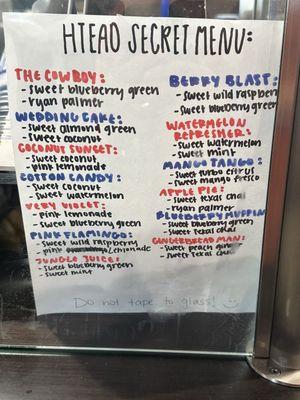 HTEAO SECRET MENU:
THE COWBOY:
- sweet blueberry green
- ryan palmer
WEDDING CAKE:
- sweet almond green
- sweet coconut
COCONUT SUNSET:
- sweet coconut
- pink lemonade
COTTON CANDY:
- sweet coconut
- sweet watermelon
VERY VIOLET:
- pink lemonade
- sweet blueberry green
PINK FLAMINGO:
- sweet wild raspberry
- pink lemonade
JUNGLE JUICE:
- sweet blueberry green
- sweet mint
BERRY BLAST:
- sweet wild raspberry
- sweet blueberry green
WATERMELON
REFRESHER:
- sweet watermelon
- sweet mint
MANGO TANGO:
- sweet turbo citrus
- sweet mango fresco
APPLE PIE:
- sweet texas chai
- ryan palmer
BLUEBERRY MUFFIN:
- sweet blueberry green
- sweet texas chai
GINGERBREAD MAN:
- sweet peach ginger
- sweet texas chai
Do not tape to glass!